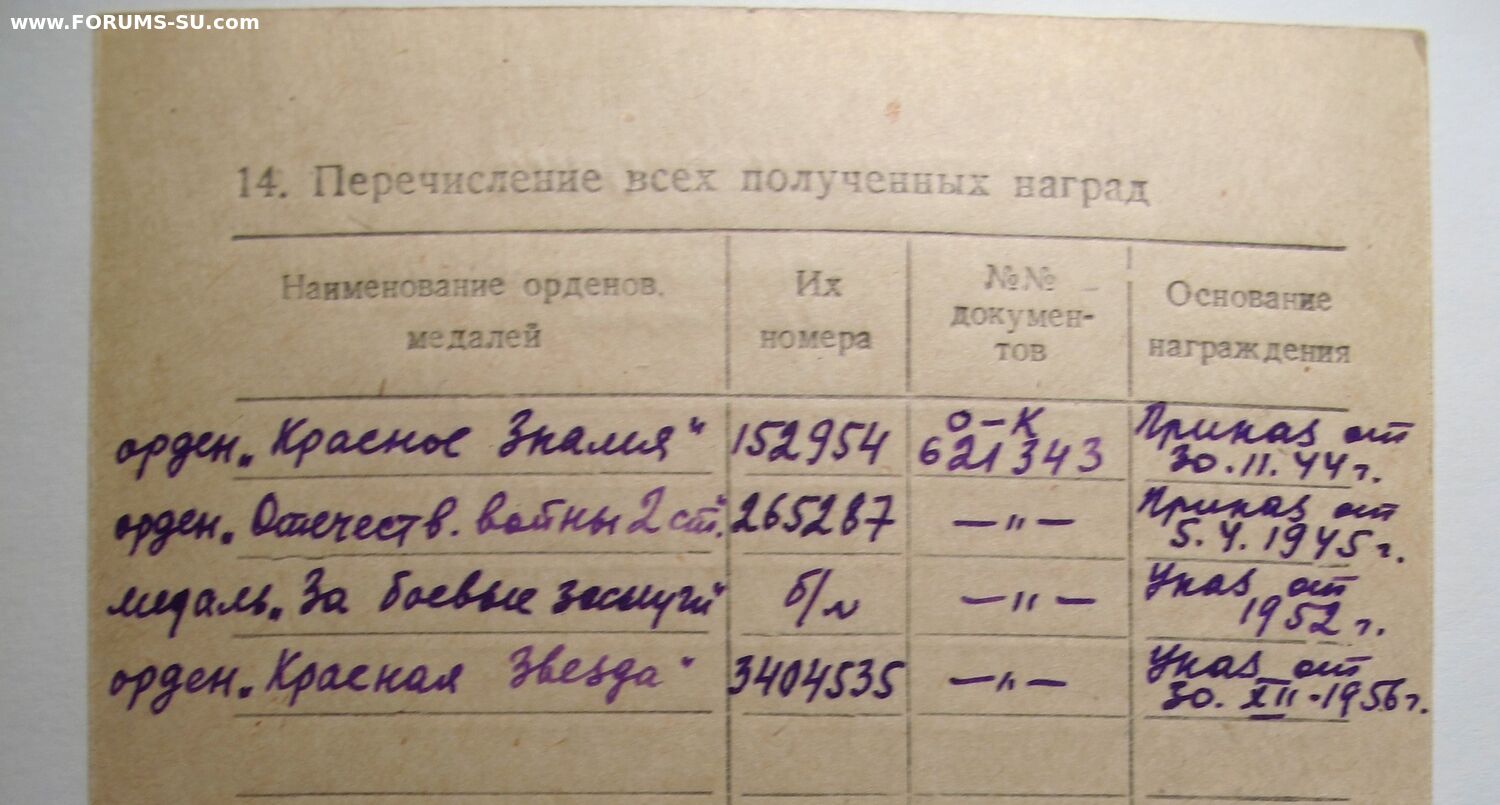 www.FORUMS-SU.com
14. Перечисление всех полученных наград
Наименование орденов, медалей
Их номера
№№ документов
Основание награждения
орден „Красное Знамя“ 152954 О-К 621343 Приказ от 30.11.44 г.
орден „Отечеств. войны 2 ст.“ 265287 —"— Приказ от 5.4.1945 г.
медаль „За боевые заслуги“ б/н —"— Указ от 1952 г.
орден „Красная Звезда“ 3404535 —"— Указ от 30.XII-1956 г.